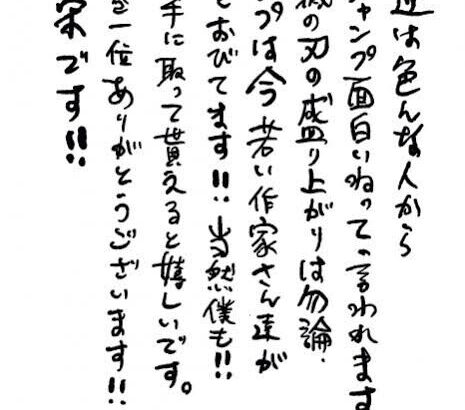 近は色んな人から
ャンプ面白いねって言われます
滅の刃の盛り上がりは勿論、
プは今若い作家さん達が
とおびてます!!当然僕も!!
手に取って貰えると嬉しいです。
き一位ありがとうございます!!
栄です!!